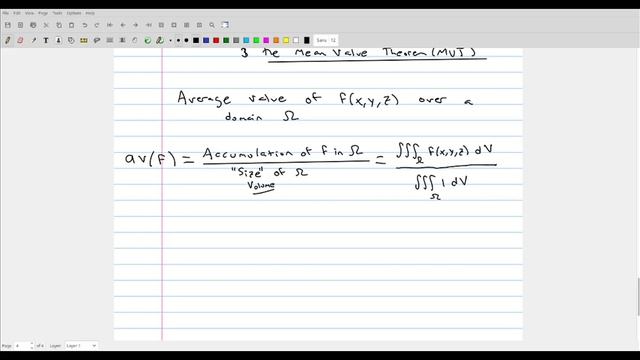 File Edit View Journal Page Tools Plugin Help
Sans 12
3 the Mean Value Theorem (MVT)
Average value of f(x,y,z) over a
domain Ω
av(f) = Accumulation of f in Ω / "Size" of Ω = ∭_Ω f(x,y,z) dV / ∭_Ω 1 dV
Volume
Page 4 of 4 Layer: Layer 1